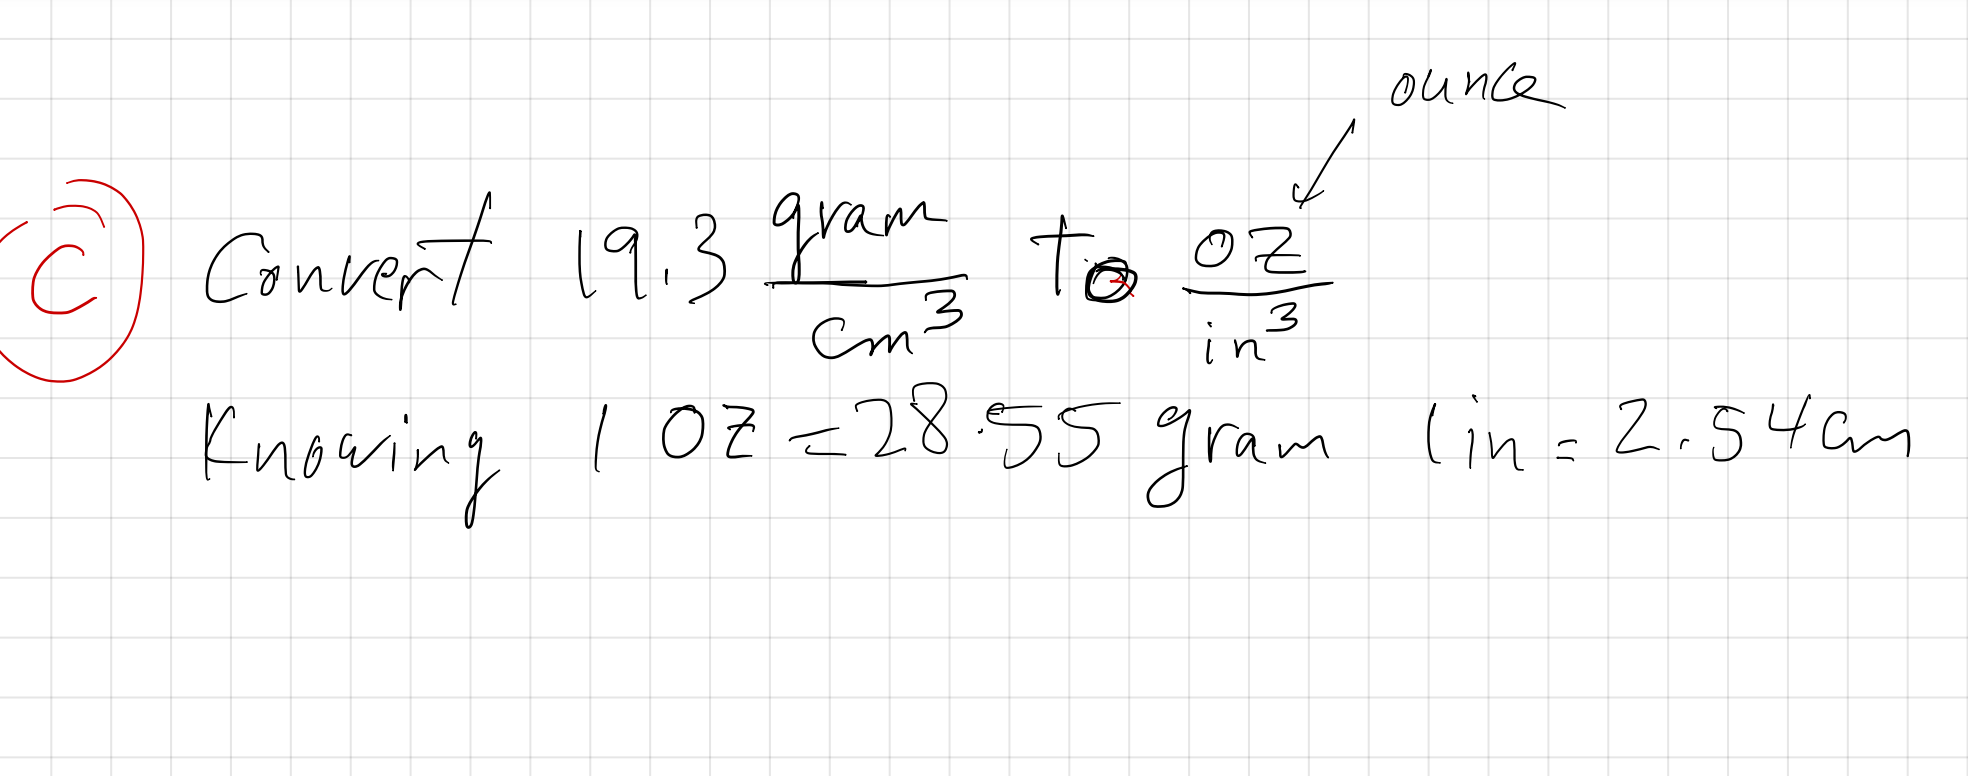 ounce
C Convert 19.3 gram/cm³ to oz/in³
Knowing 1 oz = 28.55 gram 1 in = 2.54 cm